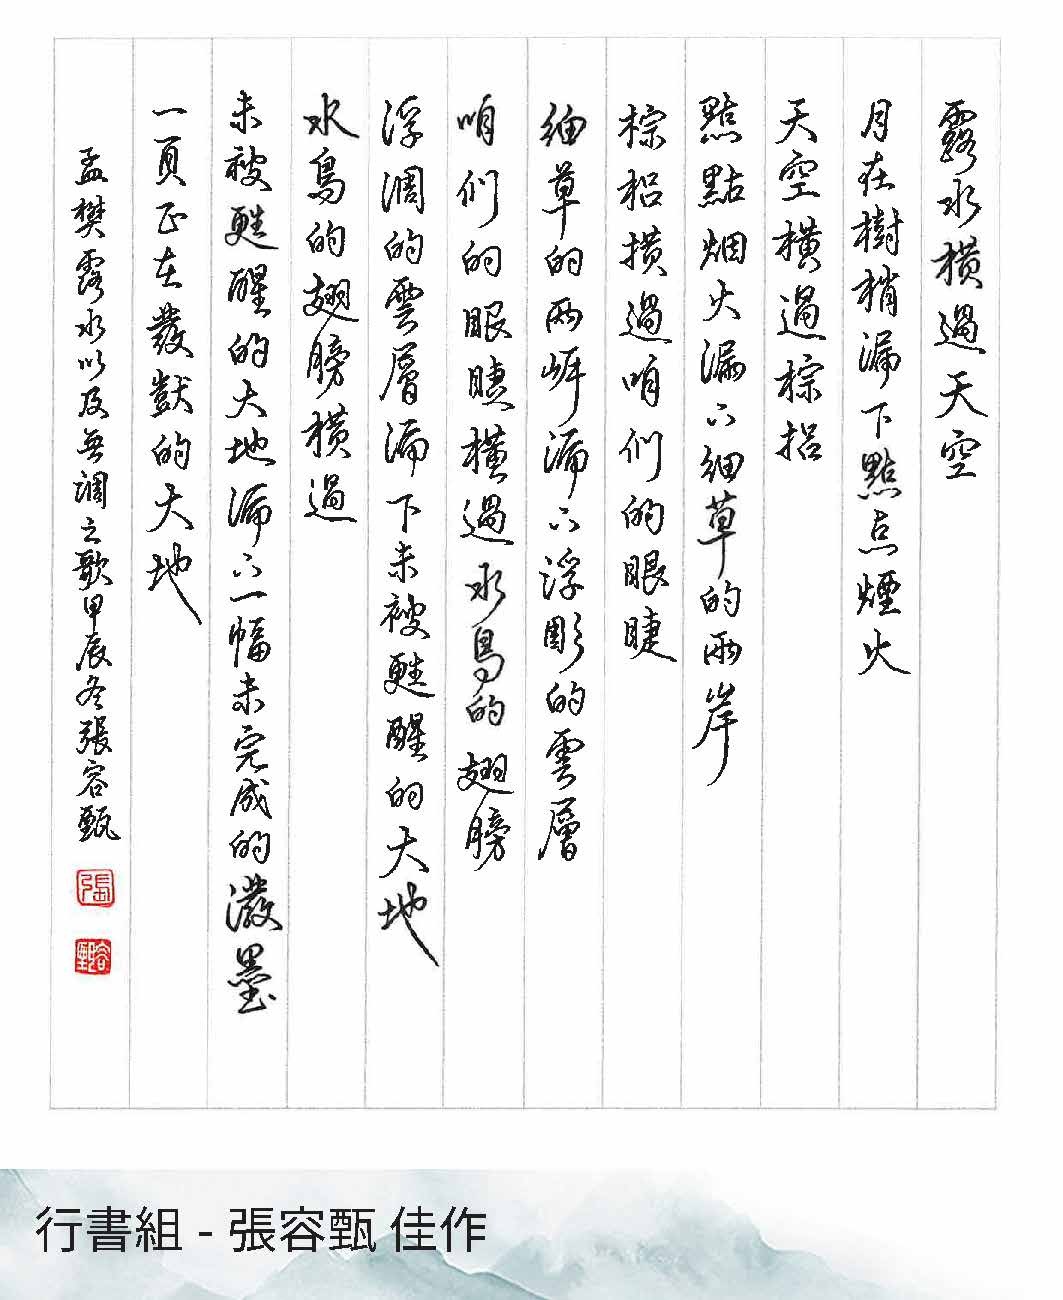 露水橫過天空
月在樹梢漏下點点煙火
天空橫過棕梠
點點烟火漏下細草的兩岸
棕梠橫過咱们的眼睫
細草的兩岸漏下浮彫的雲層
咱们的眼睫橫過水鳥的翅膀
浮凋的雲層漏下未被甦醒的大地
水鳥的翅膀橫過
未被甦醒的大地漏下一幅未完成的潑墨
一頁正在發獃的大地
孟樊露水以及無調之歌甲辰冬張容甄
張
容甄
行書組 - 張容甄 佳作